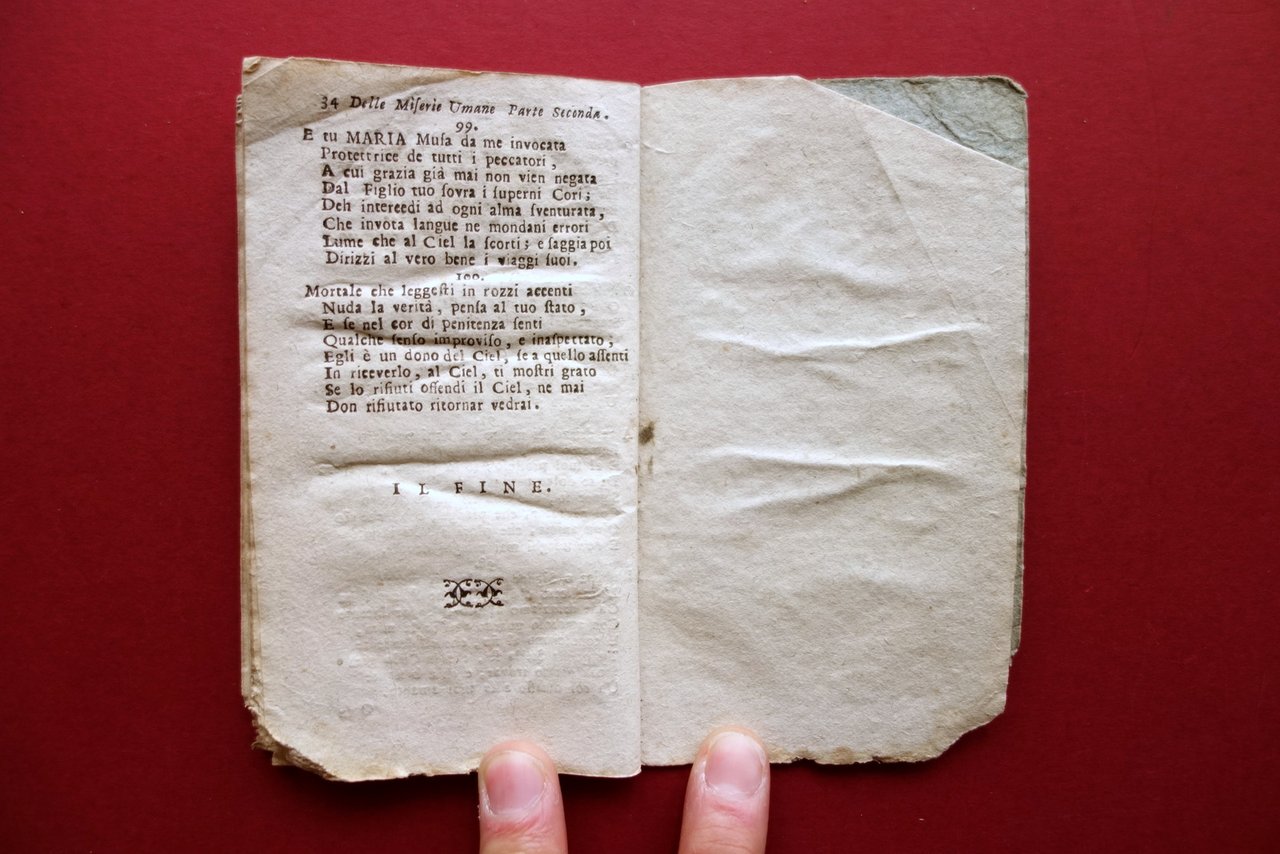 34 Delle Miſerie Umane Parte Seconda.
99.
E tu MARIA Muſa da me invocata
Protettrice de tutti i peccatori,
A cui grazia già mai non vien negata
Dal Figlio tuo ſovra i ſuperni Cori;
Deh intercedi ad ogni alma ſventurata,
Che invota langue ne mondani errori
Lume che al Ciel la ſcorti; e ſaggia poi
Dirizzi al vero bene i viaggi ſuoi.
100.
Mortale che leggeſti in rozzi accenti
Nuda la verità, penſa al tuo ſtato,
E ſe nel cor di penitenza ſenti
Qualche ſenſo improviſo, e inaſpettato;
Egli è un dono del Ciel, ſe a quello aſſenti
In riceverlo, al Ciel, ti moſtri grato
Se lo rifiuti offendi il Ciel, ne mai
Don rifiutato ritornar vedrai.
IL FINE.